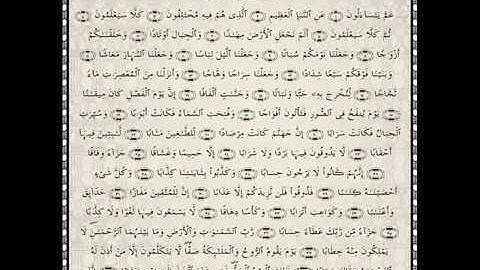 عَمَّ يَتَسَآءَلُونَ ۝ عَنِ ٱلنَّبَإِ ٱلْعَظِيمِ ۝ ٱلَّذِى هُمْ فِيهِ مُخْتَلِفُونَ ۝ كَلَّا سَيَعْلَمُونَ ۝
ثُمَّ كَلَّا سَيَعْلَمُونَ ۝ أَلَمْ نَجْعَلِ ٱلْأَرْضَ مِهَٰدًا ۝ وَٱلْجِبَالَ أَوْتَادًا ۝ وَخَلَقْنَٰكُمْ
أَزْوَٰجًا ۝ وَجَعَلْنَا نَوْمَكُمْ سُبَاتًا ۝ وَجَعَلْنَا ٱلَّيْلَ لِبَاسًا ۝ وَجَعَلْنَا ٱلنَّهَارَ مَعَاشًا ۝
وَبَنَيْنَا فَوْقَكُمْ سَبْعًا شِدَادًا ۝ وَجَعَلْنَا سِرَاجًا وَهَّاجًا ۝ وَأَنزَلْنَا مِنَ ٱلْمُعْصِرَٰتِ مَآءً
ثَجَّاجًا ۝ لِّنُخْرِجَ بِهِۦ حَبًّا وَنَبَاتًا ۝ وَجَنَّٰتٍ أَلْفَافًا ۝ إِنَّ يَوْمَ ٱلْفَصْلِ كَانَ مِيقَٰتًا ۝
يَوْمَ يُنفَخُ فِى ٱلصُّورِ فَتَأْتُونَ أَفْوَاجًا ۝ وَفُتِحَتِ ٱلسَّمَآءُ فَكَانَتْ أَبْوَٰبًا ۝ وَسُيِّرَتِ
ٱلْجِبَالُ فَكَانَتْ سَرَابًا ۝ إِنَّ جَهَنَّمَ كَانَتْ مِرْصَادًا ۝ لِّلطَّٰغِينَ مَـَٔابًا ۝ لَّٰبِثِينَ فِيهَآ
أَحْقَابًا ۝ لَّا يَذُوقُونَ فِيهَا بَرْدًا وَلَا شَرَابًا ۝ إِلَّا حَمِيمًا وَغَسَّاقًا ۝ جَزَآءً وِفَاقًا
۝ إِنَّهُمْ كَانُوا۟ لَا يَرْجُونَ حِسَابًا ۝ وَكَذَّبُوا۟ بِـَٔايَٰتِنَا كِذَّابًا ۝ وَكُلَّ شَىْءٍ
أَحْصَيْنَٰهُ كِتَٰبًا ۝ فَذُوقُوا۟ فَلَن نَّزِيدَكُمْ إِلَّا عَذَابًا ۝ إِنَّ لِلْمُتَّقِينَ مَفَازًا ۝ حَدَآئِقَ
وَأَعْنَٰبًا ۝ وَكَوَاعِبَ أَتْرَابًا ۝ وَكَأْسًا دِهَاقًا ۝ لَّا يَسْمَعُونَ فِيهَا لَغْوًا وَلَا كِذَّٰبًا
۝ جَزَآءً مِّن رَّبِّكَ عَطَآءً حِسَابًا ۝ رَّبِّ ٱلسَّمَٰوَٰتِ وَٱلْأَرْضِ وَمَا بَيْنَهُمَا ٱلرَّحْمَٰنِ لَا
يَمْلِكُونَ مِنْهُ خِطَابًا ۝ يَوْمَ يَقُومُ ٱلرُّوحُ وَٱلْمَلَٰٓئِكَةُ صَفًّا لَّا يَتَكَلَّمُونَ إِلَّا مَنْ أَذِنَ لَهُ